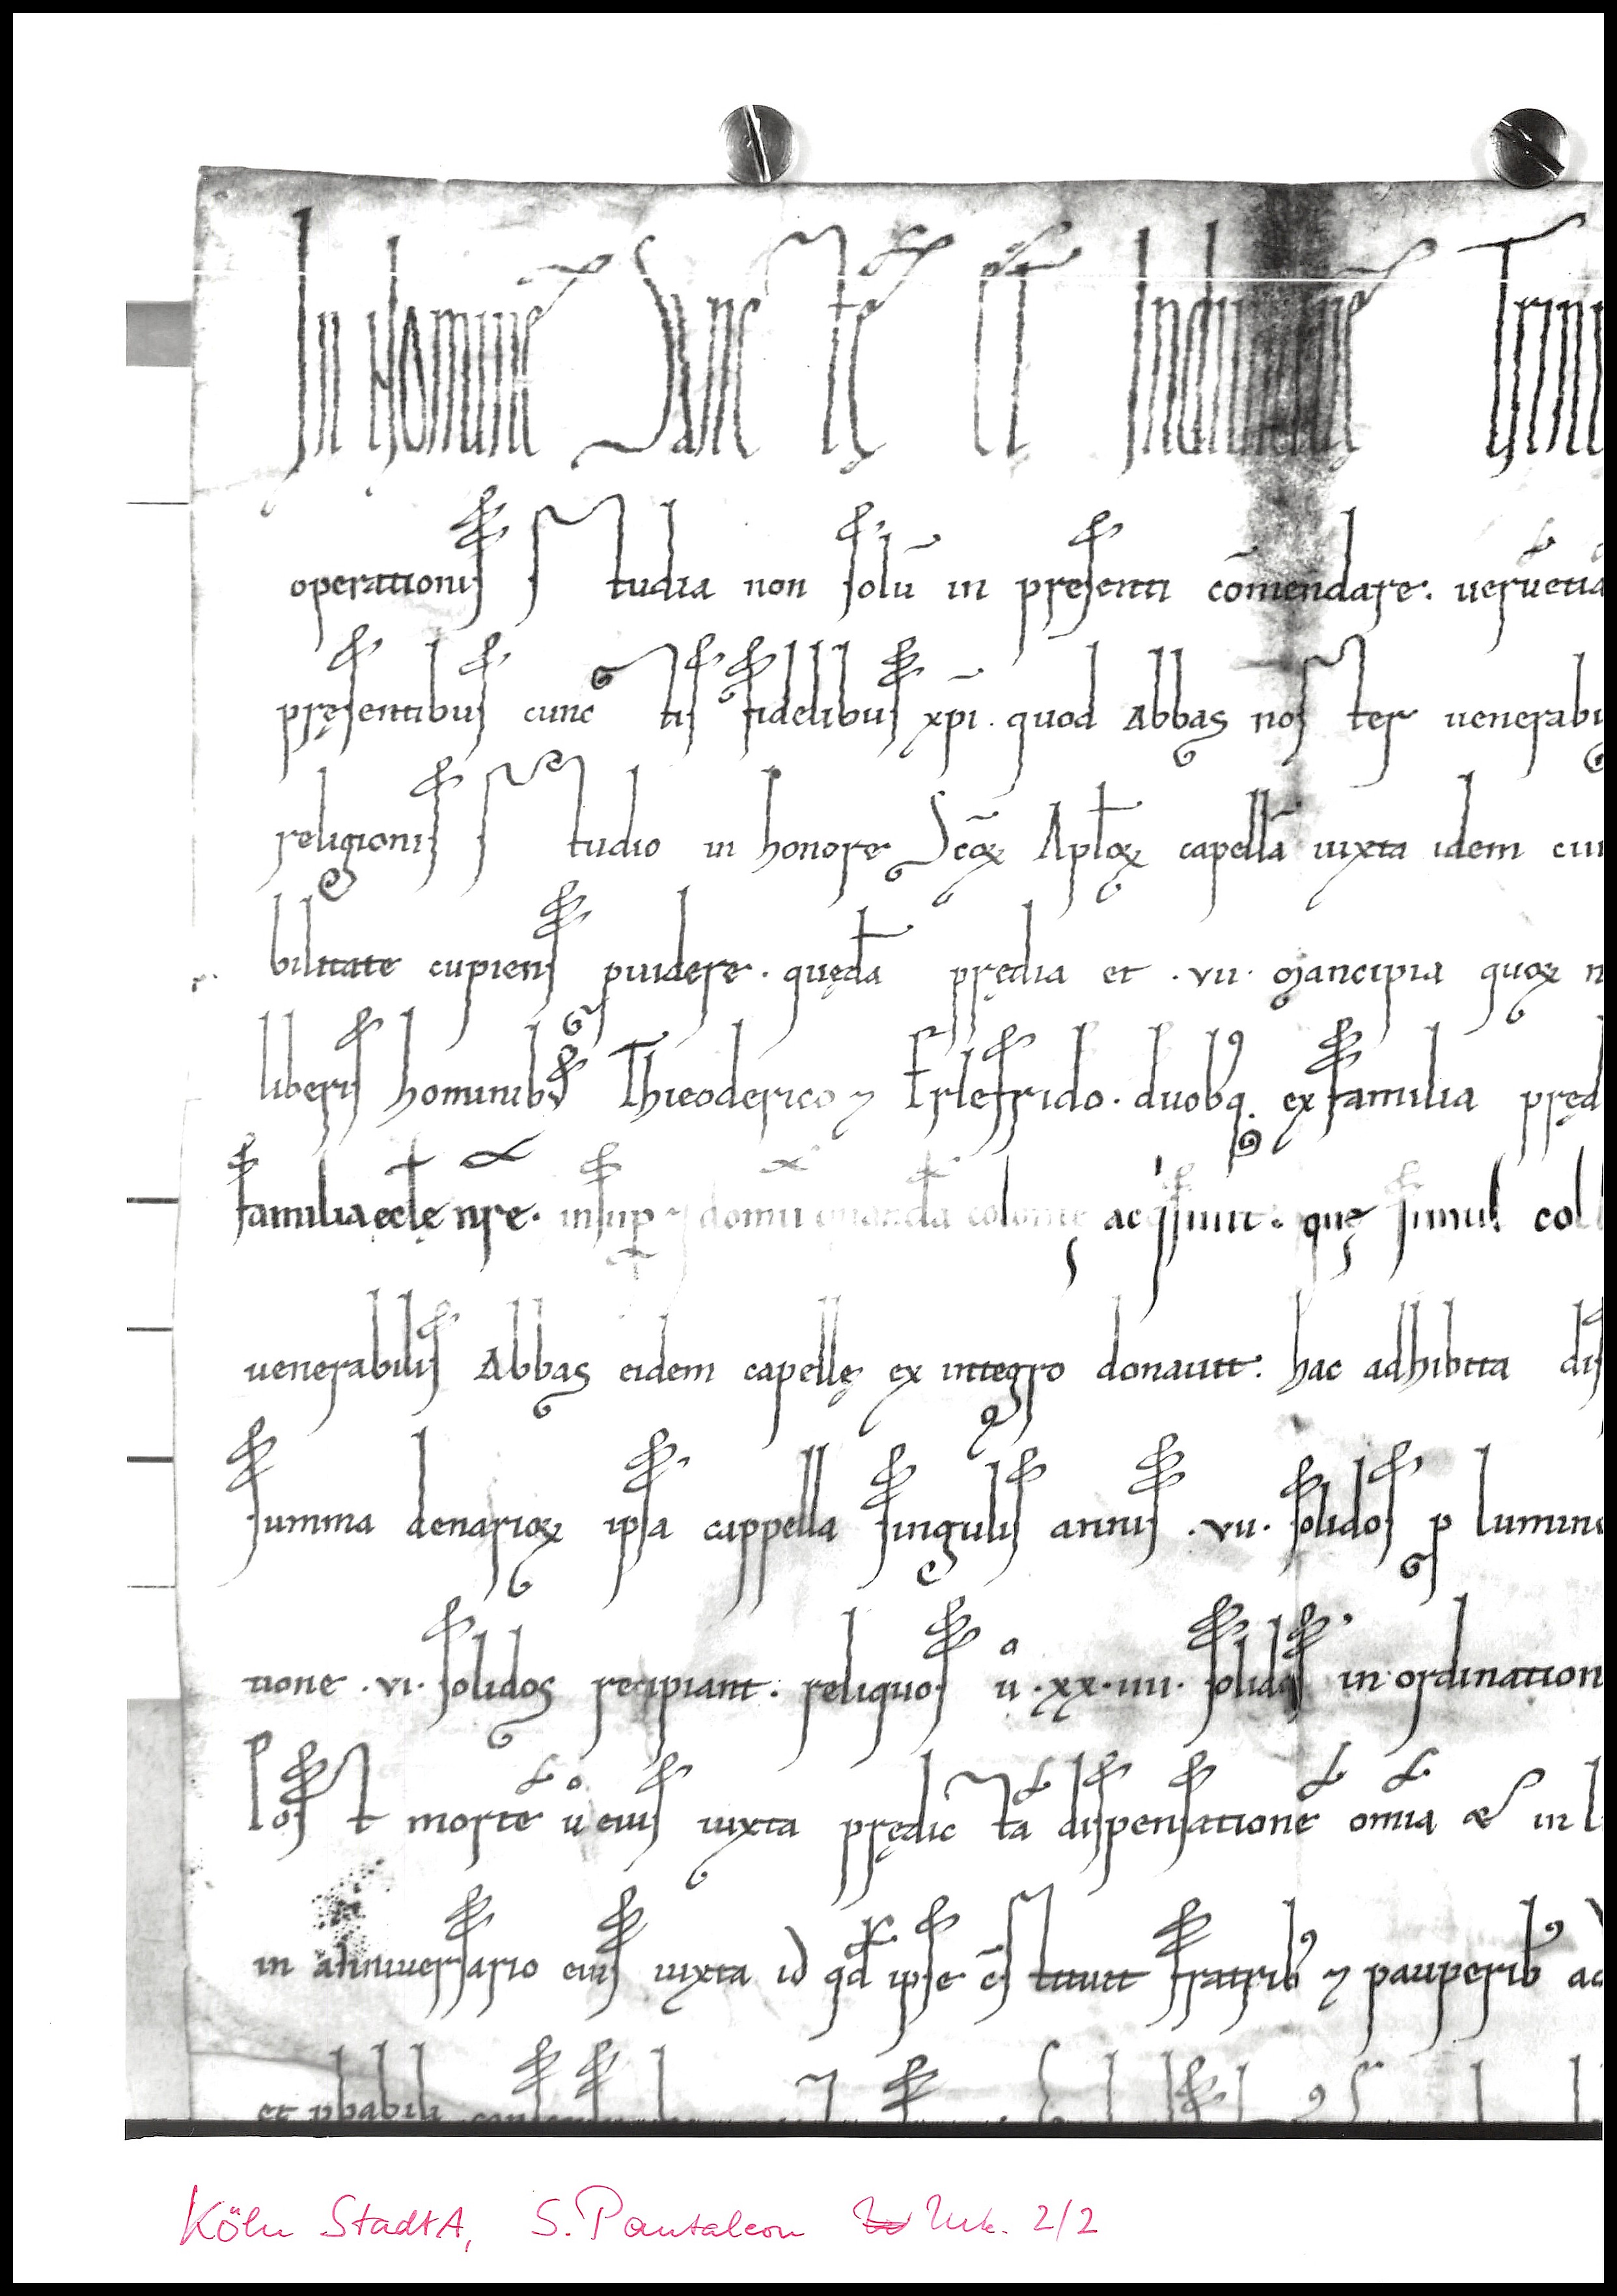 In Nomine Sancte et Indiuidue Trini
operationis studia non solū in presenti cōmendare. uerūetiā
pręsentibus cunctis fidelibus xp̄i. quod Abbas noster uenerabi
religionis studio in honore Scōꝝ Apl̄oꝝ capellā iuxta idem
bilitate cupiens ꝓuidere. quędā prędia et .vii. mancipia quoꝝ
liberis hominibꝰ Thieoderico ⁊ Erlefrido. duobꝰq. ex familia pręd
familia eccl̄ę nr̄e. insuꝑ ⁊ domū colonię acq'siuit. quę simul col
uenerabilis Abbas eidem capellę ex integro donauit. hac adhibita dis
summa denarioꝝ ipsa cappella singulis annis .vii. solidos ꝑ lumin
tione .vi. solidos recipiant. reliquos uͦ .xx.iiii. solidos in ordination
Post mortē uͦ eius iuxta prędictā dispensationē om̄ia et in
in anniuersario eius iuxta id qd̄ ipse c̄stituit fratribꝰ ⁊ pauperibꝰ
et ꝓbabili
Köln StadtA, S. Pantaleon Urk. 2/2